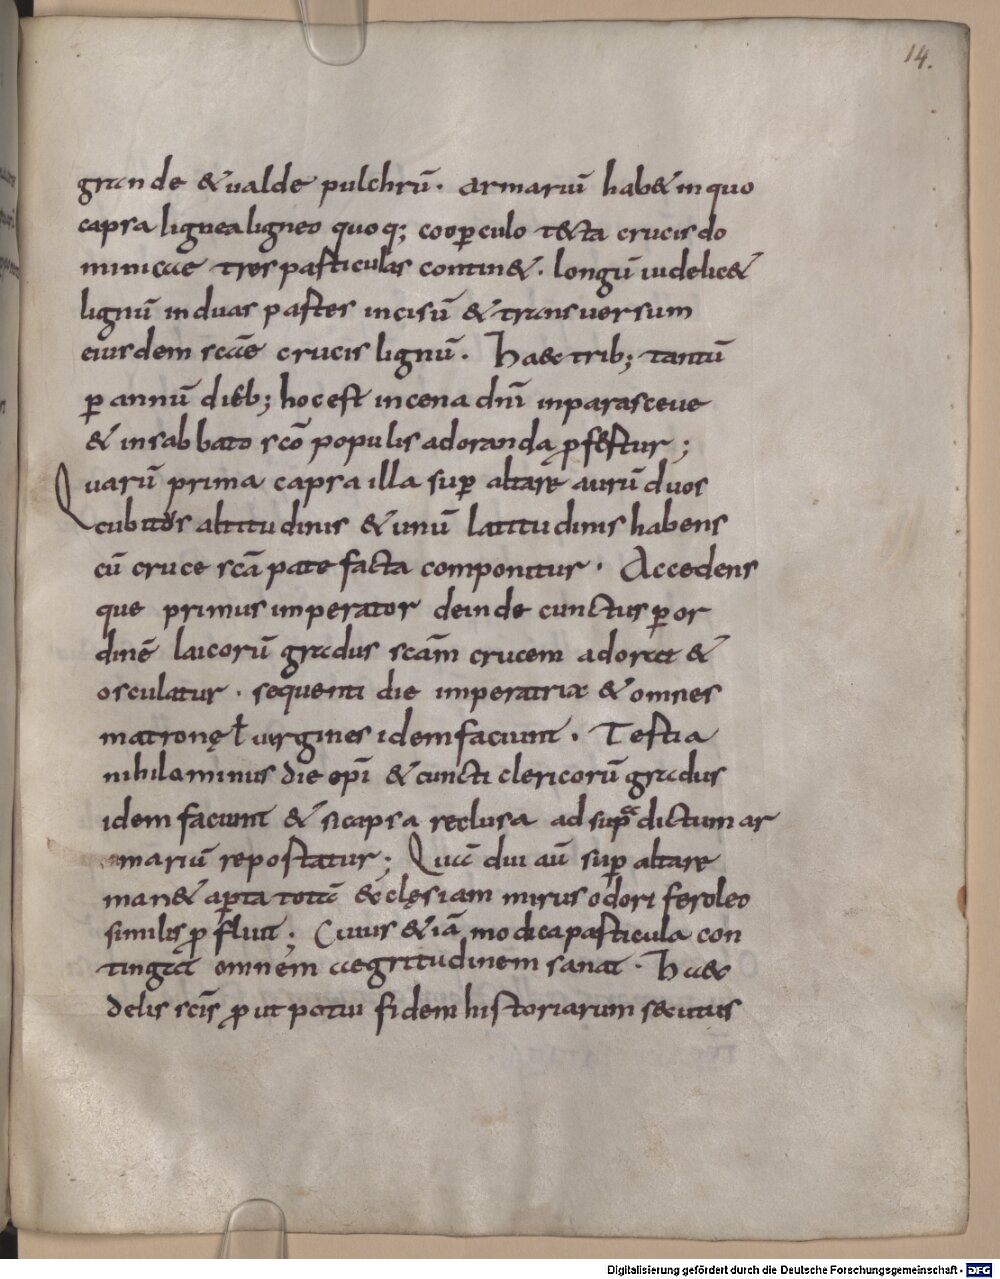 14.
grande & ualde pulchrū. armariū hab& inquo
capsa lignea ligneo quoq; cooꝑculo tecta crucis do
minicae tres particulas contin&. longū uidelic&
lignū induas partes incisū & transuersum
eiusdem scae crucis lignū. Haec trib; tantū
ꝑ annū dieb; hoc est incena dnī inparasceue
& insabbato scō populis adoranda ꝓfertur;
Quarū prima capsa illa suꝑ altare aurū duos
cubitos altitudinis & unū latitudinis habens
cū cruce scā patefacta componitur. Accedens
que primus imperator deinde cunctus ꝑ or
dinē laicorū gradus scām crucem adorat &
osculatur. sequenti die imperatrix & omnes
matronę ł uirgines idem faciunt. Tertia
nihilominus die epī & cuncti clericorū gradus
idem faciunt & sic capsa reclusa ad supͣdictum ar
marium reportatur; Quā diu aū suꝑ altare
man& aꝑta totā ecclesiam mirus odor feroleo
similis ꝓfluit; Cuius & iā modica particula con
tingat omnem aegritudinem sanat. Haec
delis scīs ꝓut potui fidem historiarum secutus
Digitalisierung gefördert durch die Deutsche Forschungsgemeinschaft - DFG